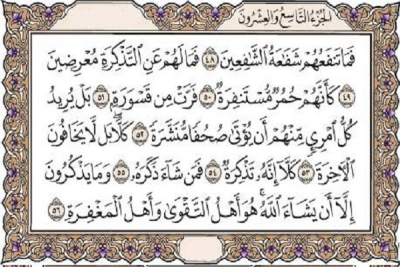 الجزء التاسع والعشرون
فَمَا تَنفَعُهُمْ شَفَٰعَةُ ٱلشَّٰفِعِينَ ٤٨ فَمَا لَهُمْ عَنِ ٱلتَّذْكِرَةِ مُعْرِضِينَ
٤٩ كَأَنَّهُمْ حُمُرٌ مُّسْتَنفِرَةٌ ٥٠ فَرَّتْ مِن قَسْوَرَةٍ ٥١ بَلْ يُرِيدُ
كُلُّ ٱمْرِئٍ مِّنْهُمْ أَن يُؤْتَىٰ صُحُفًا مُّنَشَّرَةً ٥٢ كَلَّا بَل لَّا يَخَافُونَ
ٱلْأَخِرَةَ ٥٣ كَلَّآ إِنَّهُۥ تَذْكِرَةٌ ٥٤ فَمَن شَآءَ ذَكَرَهُۥ ٥٥ وَمَا يَذْكُرُونَ
إِلَّآ أَن يَشَآءَ ٱللَّهُ هُوَ أَهْلُ ٱلتَّقْوَىٰ وَأَهْلُ ٱلْمَغْفِرَةِ ٥٦